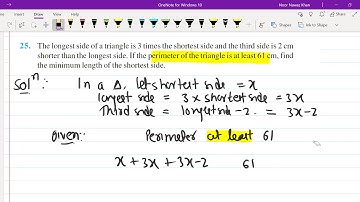 OneNote for Windows 10
Noor Nawaz Khan
25. The longest side of a triangle is 3 times the shortest side and the third side is 2 cm
shorter than the longest side. If the perimeter of the triangle is at least 61 cm, find
the minimum length of the shortest side.
Solⁿ:- In a Δ, let shortest side = x
longest side = 3 x shortest side = 3x
Third side = longest side - 2 = 3x-2
Given:- Perimeter at least 61
x + 3x + 3x - 2 61